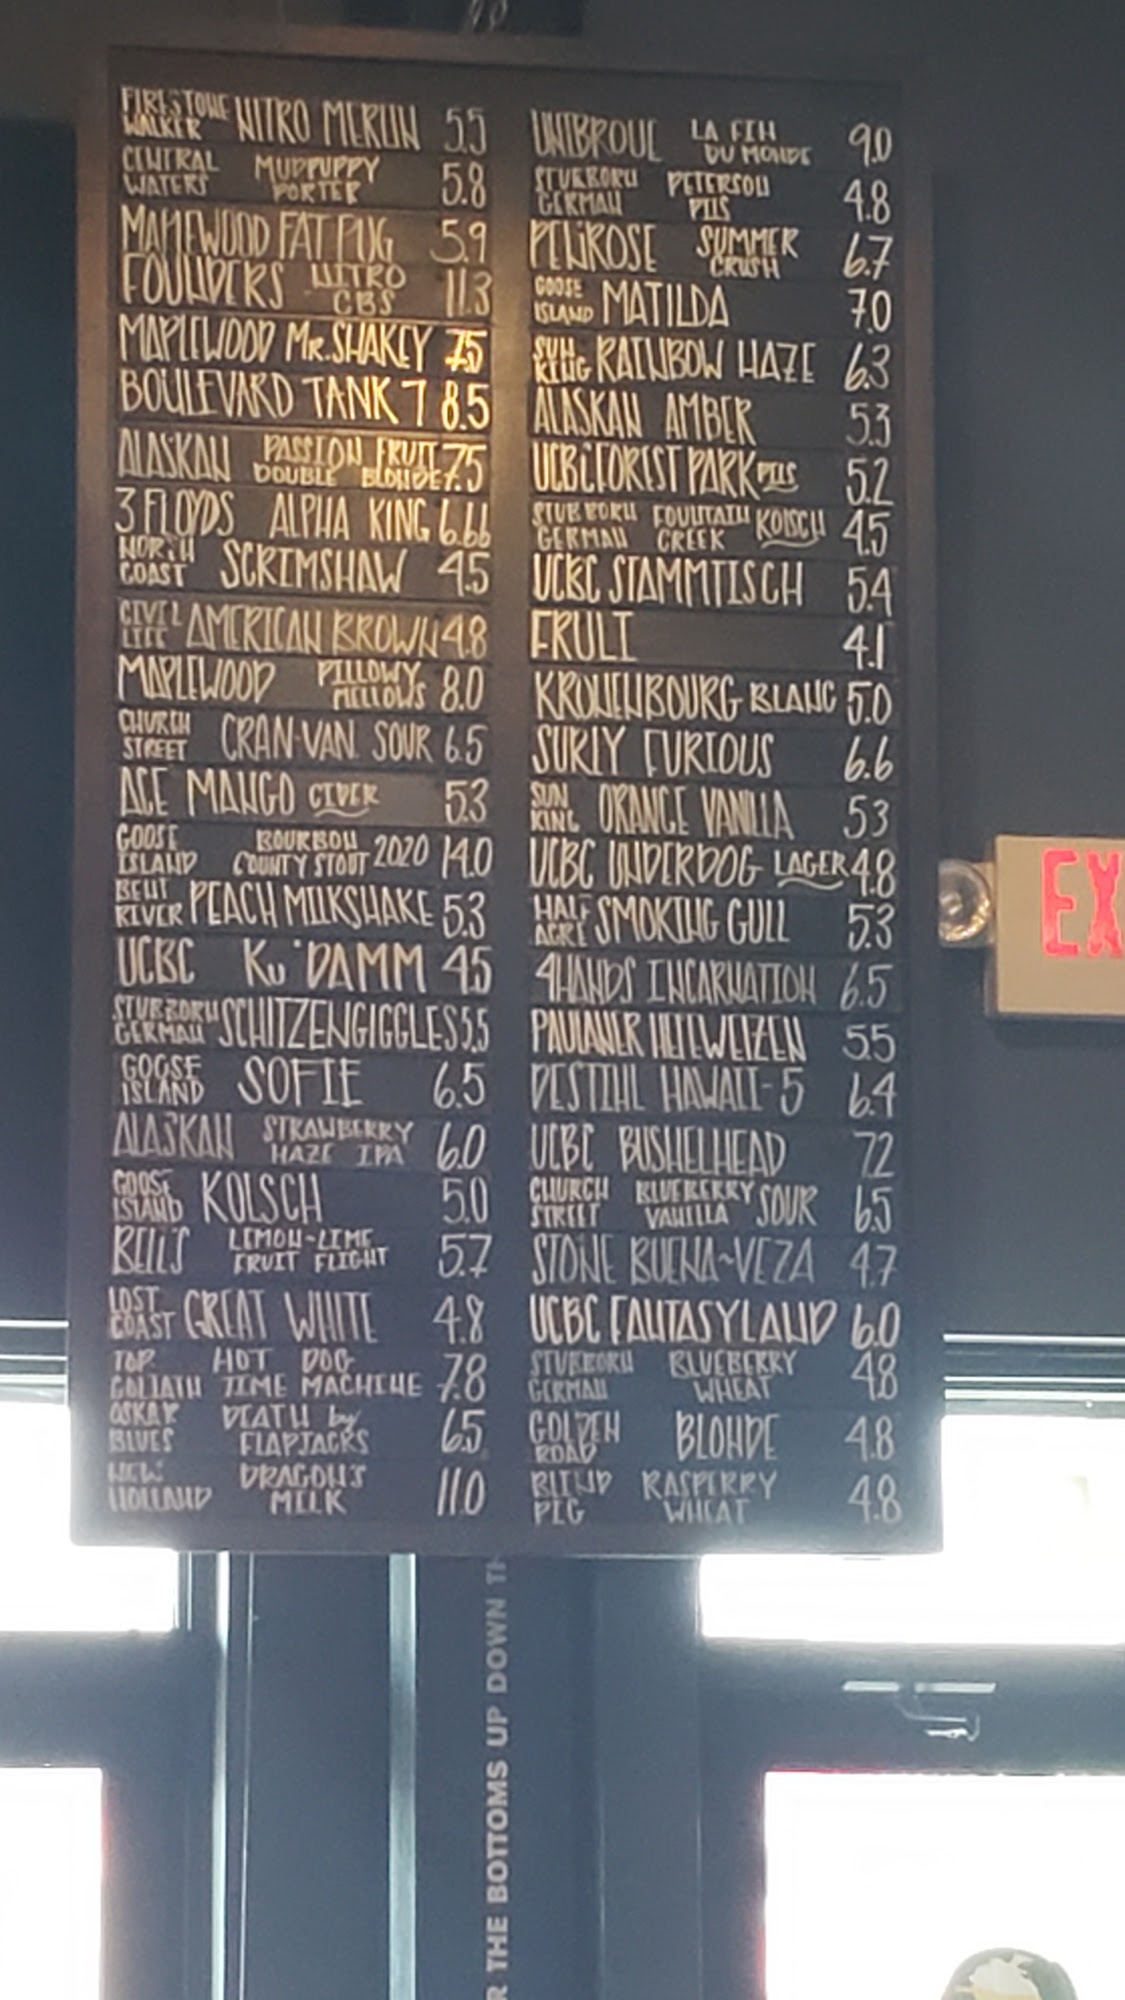 FIRESTONE WALKER NITRO MERLIN 5.5
CENTRAL WATERS MUDPUPPY PORTER 5.8
MAPLEWOOD FAT PUG 5.9
FOUNDERS NITRO CBS 11.3
MAPLEWOOD MR. SHAKEY 7.5
BOULEVARD TANK 7 8.5
ALASKAN PASSION FRUIT DOUBLE BLONDE 7.5
3 FLOYDS ALPHA KING 6.66
NORTH COAST SCRIMSHAW 4.5
CIVIL LIFE AMERICAN BROWN 4.8
MAPLEWOOD PILLOWY MELLOWS 8.0
CHURCH STREET CRAN-VAN. SOUR 6.5
ACE MANGO CIDER 5.3
GOOSE ISLAND BOURBON COUNTY STOUT 2020 14.0
BENT RIVER PEACH MILKSHAKE 5.3
UCBC KU'DAMM 4.5
STUBBORN GERMAN SCHITZENGIGGLES 5.5
GOOSE ISLAND SOFIE 6.5
ALASKAN STRAWBERRY HAZE IPA 6.0
GOOSE ISLAND KOLSCH 5.0
BELL'S LEMON-LIME FRUIT FLIGHT 5.7
LOST COAST GREAT WHITE 4.8
TOP. GOLIATH HOT DOG TIME MACHINE 7.8
OSKAR BLUES DEATH by FLAPJACKS 6.5
NEW HOLLAND DRAGON'S MILK 11.0
UNIBROUE LA FIN DU MONDE 9.0
STUBBORN GERMAN PETERSON PILS 4.8
PENROSE SUMMER CRUSH 6.7
GOOSE ISLAND MATILDA 7.0
SUN KING RAINBOW HAZE 6.3
ALASKAN AMBER 5.3
UCBC FOREST PARK PILS 5.2
STUBBORN GERMAN FOUNTAIN CREEK KOLSCH 4.5
UCBC STAMMTISCH 5.4
FRULI 4.1
KRONENBOURG BLANC 5.0
SURLY FURIOUS 6.6
SUN KING ORANGE VANILLA 5.3
UCBC UNDERDOG LAGER 4.8
HALF ACRE SMOKING GULL 5.3
4HANDS INCARNATION 6.5
PAULANER HEFEWEIZEN 5.5
DESTIHL HAWAII-5 6.4
UCBC BUSHELHEAD 7.2
CHURCH STREET BLUEBERRY VANILLA SOUR 6.5
STONE BUENA~VEZA 4.7
UCBC FANTASYLAND 6.0
STUBBORN GERMAN BLUEBERRY WHEAT 4.8
GOLDEN ROAD BLONDE 4.8
BLIND PIG RASPERRY WHEAT 4.8
EX
R THE BOTTOMS UP DOWN TH